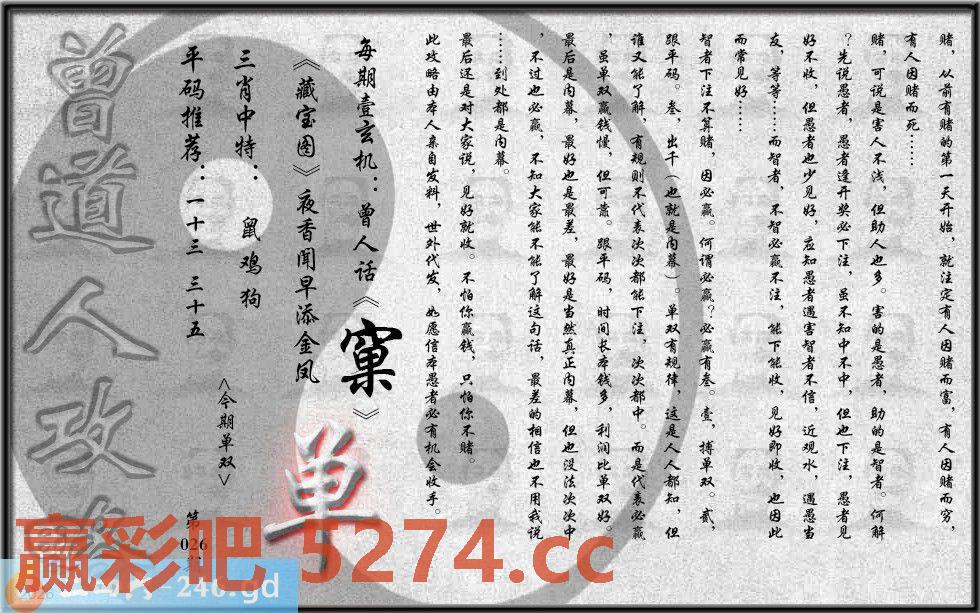 赌，从前有赌的第一天开始，就注定有人因赌而富，有人因赌而穷，
有人因赌而死……
赌，可说是害人不浅，但助人也多。害的是愚者，助的是智者。何解
？先说愚者，愚者逢开奖必下注，虽不知中不中，但也下注，愚者见
好不收，但愚者也少见好，应知愚者遇害智者不信，近观水，遇愚当
友，等等……而智者，不智必赢不注，能下能收，见好即收，也因此
而常见好……
智者下注不算赌，因必赢。何谓必赢？必赢有叁。壹，搏单双。贰，
跟平码。叁，出千（也就是内幕）。单双有规律，这是人人都知，但
谁又能了解，有规则不代表次次都能下注，次次都中。而是代表必赢
，虽单双赢钱慢，但可靠。跟平码，时间长本钱多，利润比单双好。
最后是内幕，最好也是最差，最好是当然真正内幕，但也没法次次中
，不过也必赢，不知大家能不能了解这句话，最差的相信也不用我说
……到处都是内幕。
最后还是对大家说，见好就收。不怕你赢钱，只怕你不赌。
此攻略由本人亲自发料，世外代发，如愿信本愚者必有机会收手。
每期壹玄机：曾人话《窠》
《藏宝图》夜香闻早添金凤
三肖中特：鼠鸡狗
平码推荐：一十三 三十五
<今期单双>
单
第026
曾道人攻
赢彩吧 5274.cc
-246.gd